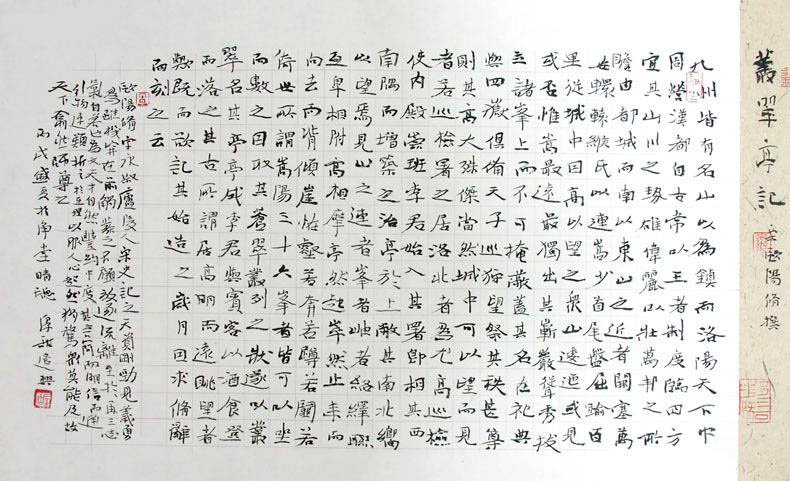 叢翠亭記 宋歐陽脩撰
九州皆有名山以為鎮而洛陽天下中
周營漢都自古常以王者制度臨四方
宜其山川之勢雄偉麗以壯萬邦之所
瞻由都城而南以東山之近者闕塞萬
安轘轅緱氏以連嵩少首尾盤屈踰百
里從城中因高以望之眾山逶迤或見
或否惟嵩最遠最獨出其嶄巖聳秀拔
立諸峯上而不可掩蔽蓋其名在祀典
與四嶽俱備天子巡狩望祭其秩甚尊
則其高大殊傑當然城中可以望而見
者若巡檢署之居洛北者為尤高巡檢
使內殿崇班李君始入其署即相其西
南隅而增築之治亭於上敞其南北嚮
以望焉見山之連者峯者岫者絡繹聯
亙卑相附高相摩亭然起崒然止來而
向去而背傾崖怪壑若奔若蹲若鬭若
倚世所謂嵩陽三十六峯者皆可以坐
而數之因取其蒼翠叢列之狀遂以叢
翠名其亭亭成李君與賓客以酒食登
而落之其古所謂居高明而遠眺望者
歟既而欲記其始造之歲月因求脩辭
而刻之云
歐陽脩字永叔廬陵人宋史記之天資剛勁見義勇
為雖機穽在前觸發之不顧放逐流離至於再三志
氣自若也為文天才自然豐約中度其言簡而明信而通
引物連類折之於至理以服人心超然獨騖眾莫能及故
天下翕然師尊之
丙戌盛夏於淨李晴